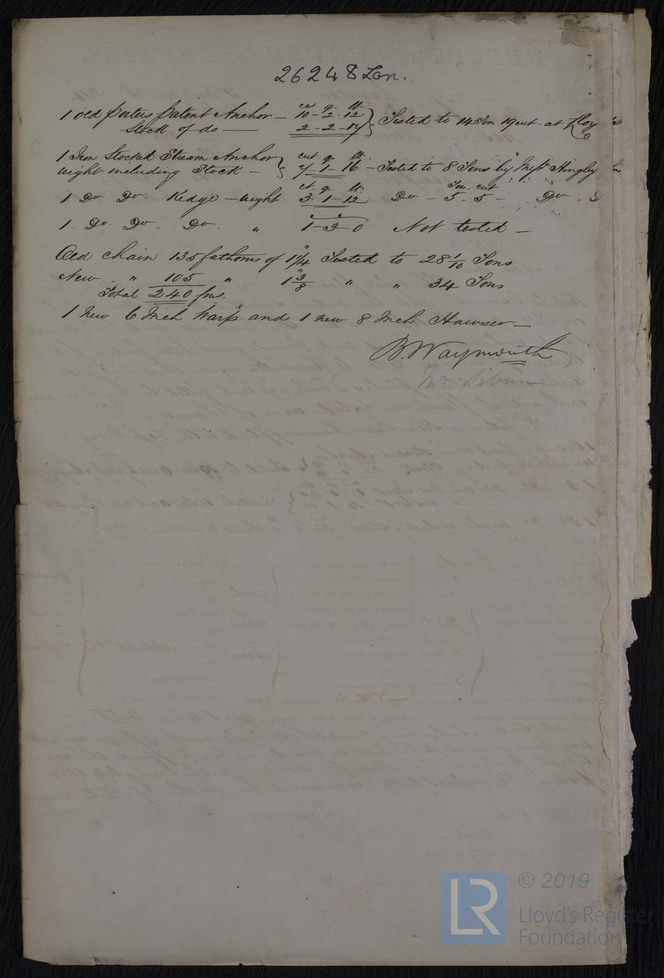 26248 Lon.
1 old Porters Patent Anchor — cwt q lb 10-2-12 } Tested to 14 Ton 19 cwt at
Stock of do — 2-2-17
1 Iron Stocked Stream Anchor } cwt q lb
weight including Stock — 7-1-16 — Tested to 8 Tons by Messrs Hingley
1 Do Do Kedge — weight cwt q lb 3-1-12 Do — Ton cwt 5 5 — Do
1 Do Do Do " 1-3-0 Not tested —
Old chain 135 fathoms of 1 1/4" Tested to 28 1/10 Tons
New " 105 " 1 3/8" " " 34 Tons
Total 240 fms.
1 New 6 Inch Warp and 1 new 8 Inch Hawser —
B. Waymouth
© 2019
LR Lloyd's Register
Foundation